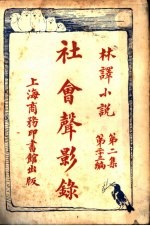 林譯小說
第二集
第十三編
社會聲影錄
上海商務印書館出版